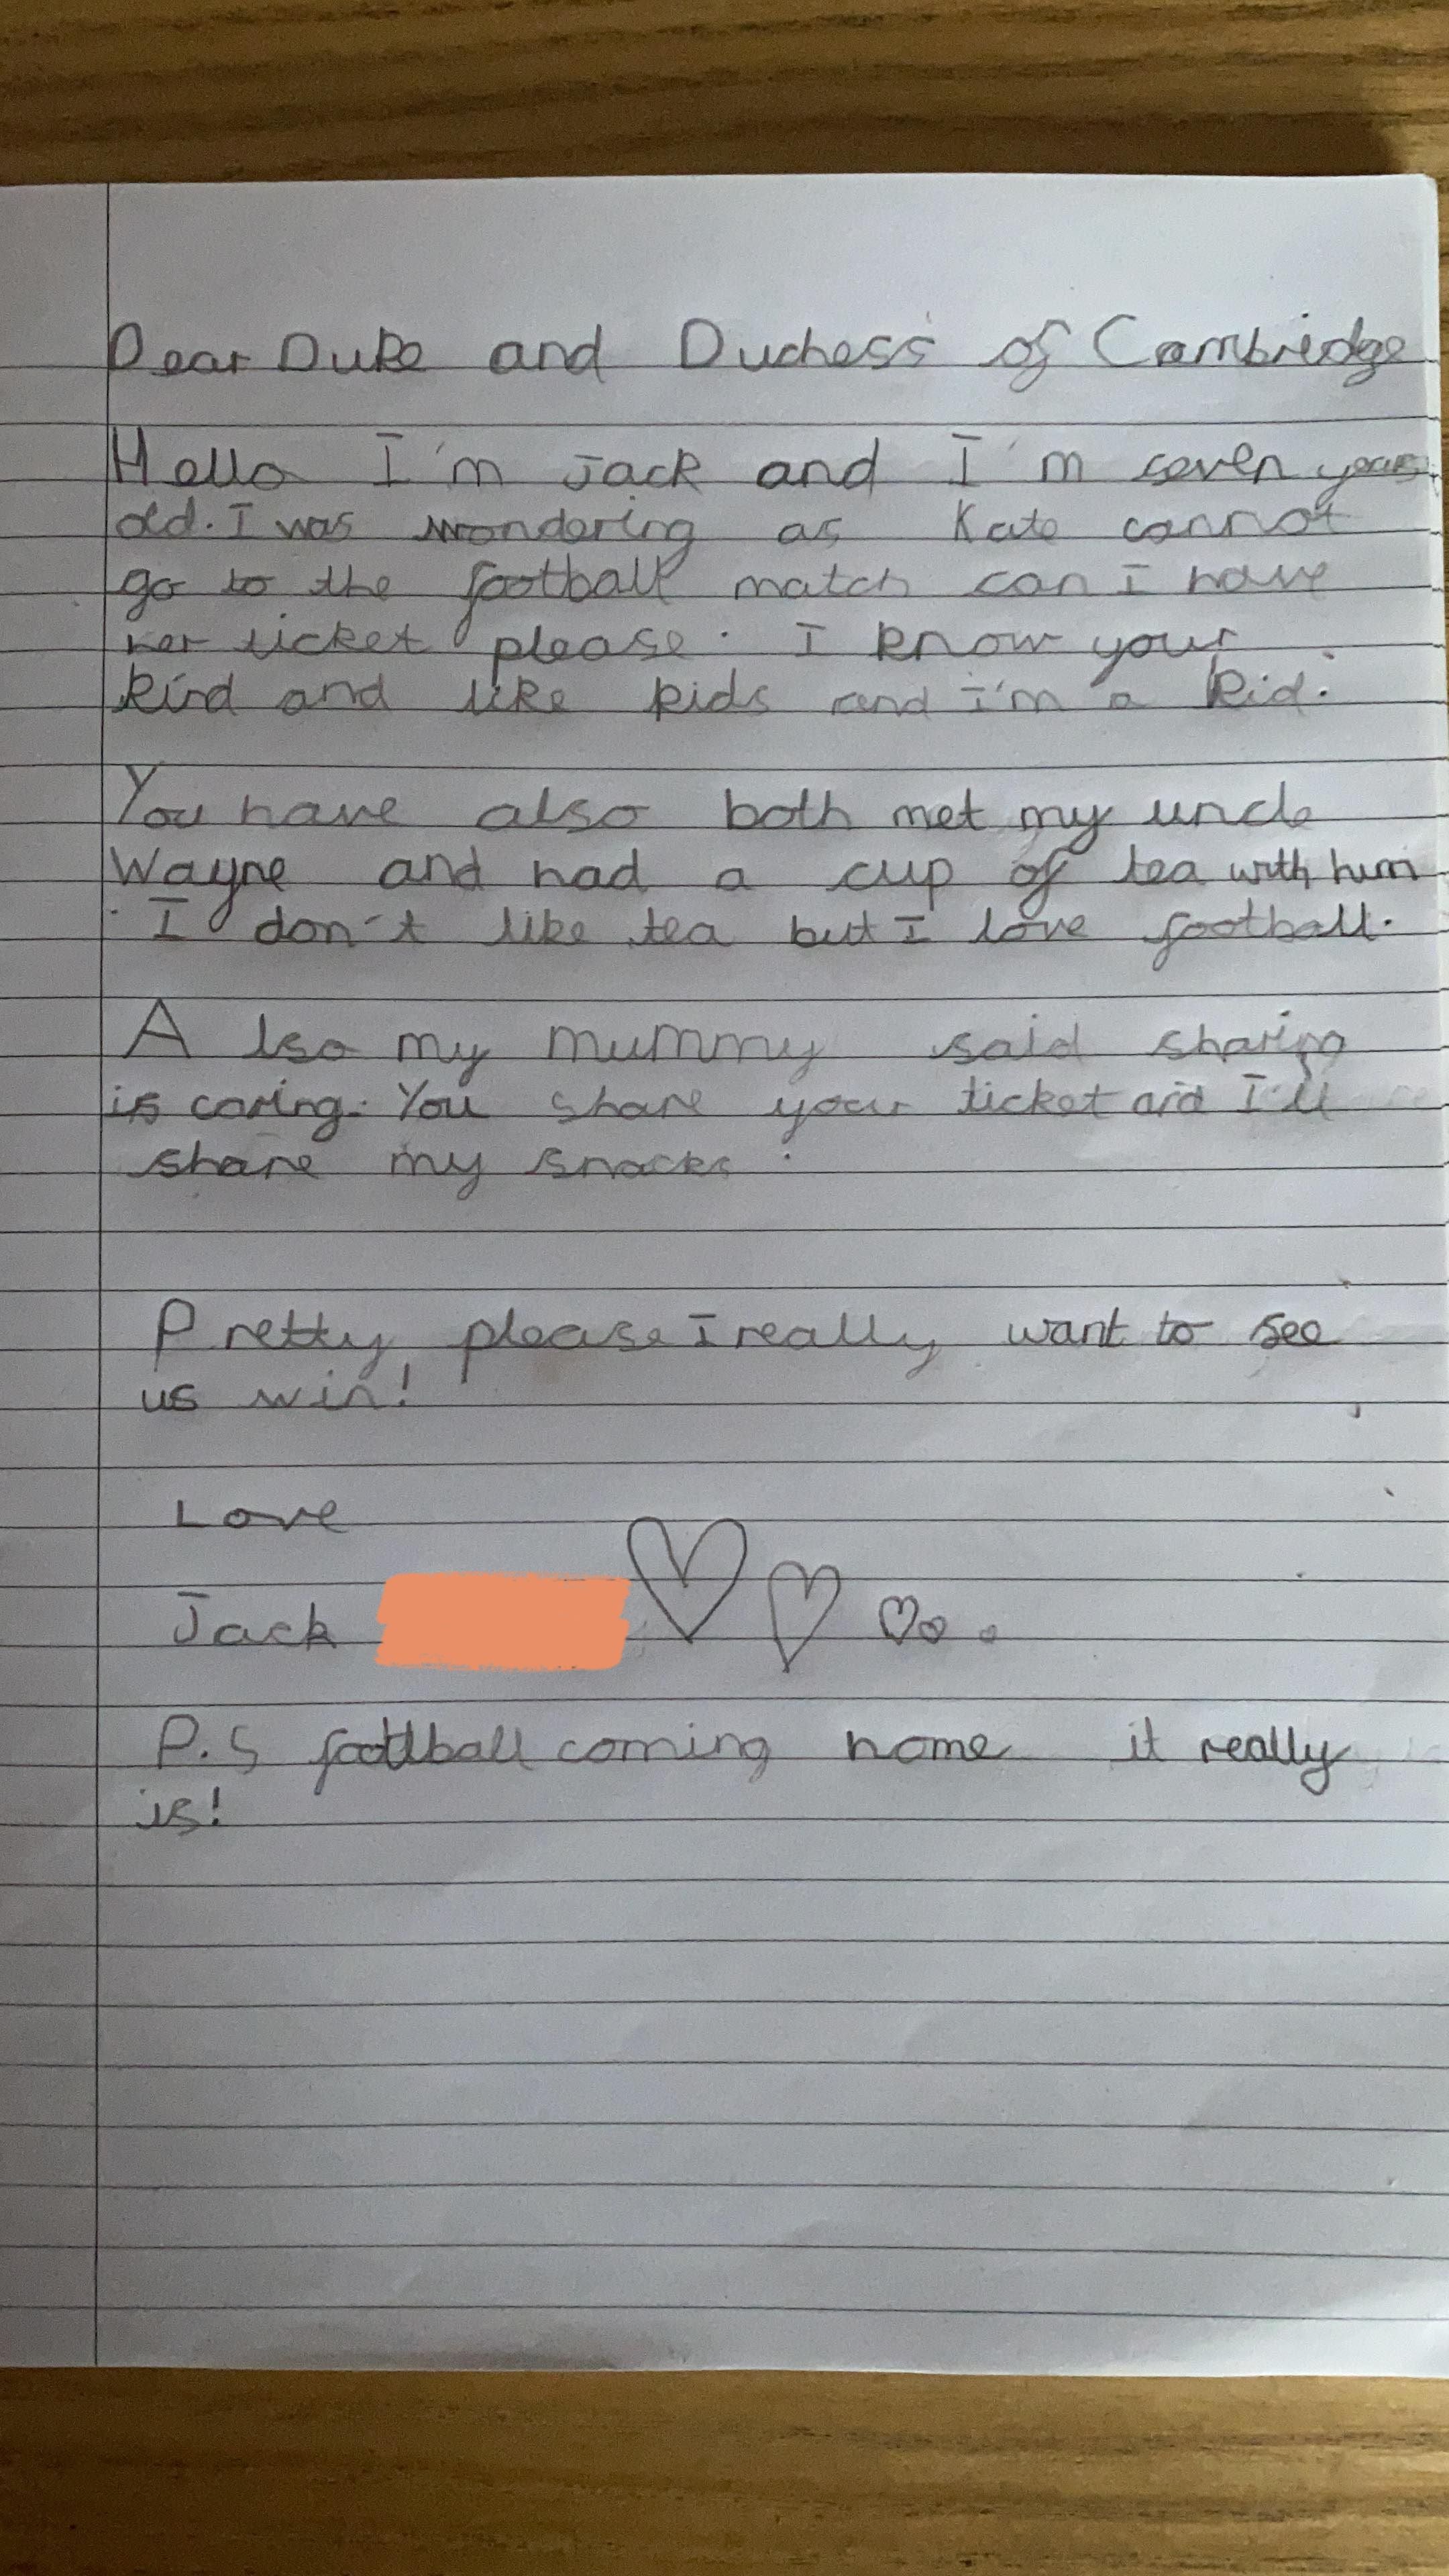 Dear Duke and Duchess of Cambridge
Hello I'm Jack and I'm seven years
old. I was wondering as Kate cannot
go to the football match can I have
her ticket please. I know your
kind and like kids and i'm a kid.
You have also both met my uncle
Wayne and had a cup of tea with him
. I don't like tea but I love football.
Also my mummy said sharing
is caring. You share your ticket and I'll
share my snacks.
Pretty please I really want to see
us win!
Love
Jack
P.S football coming home it really
is!